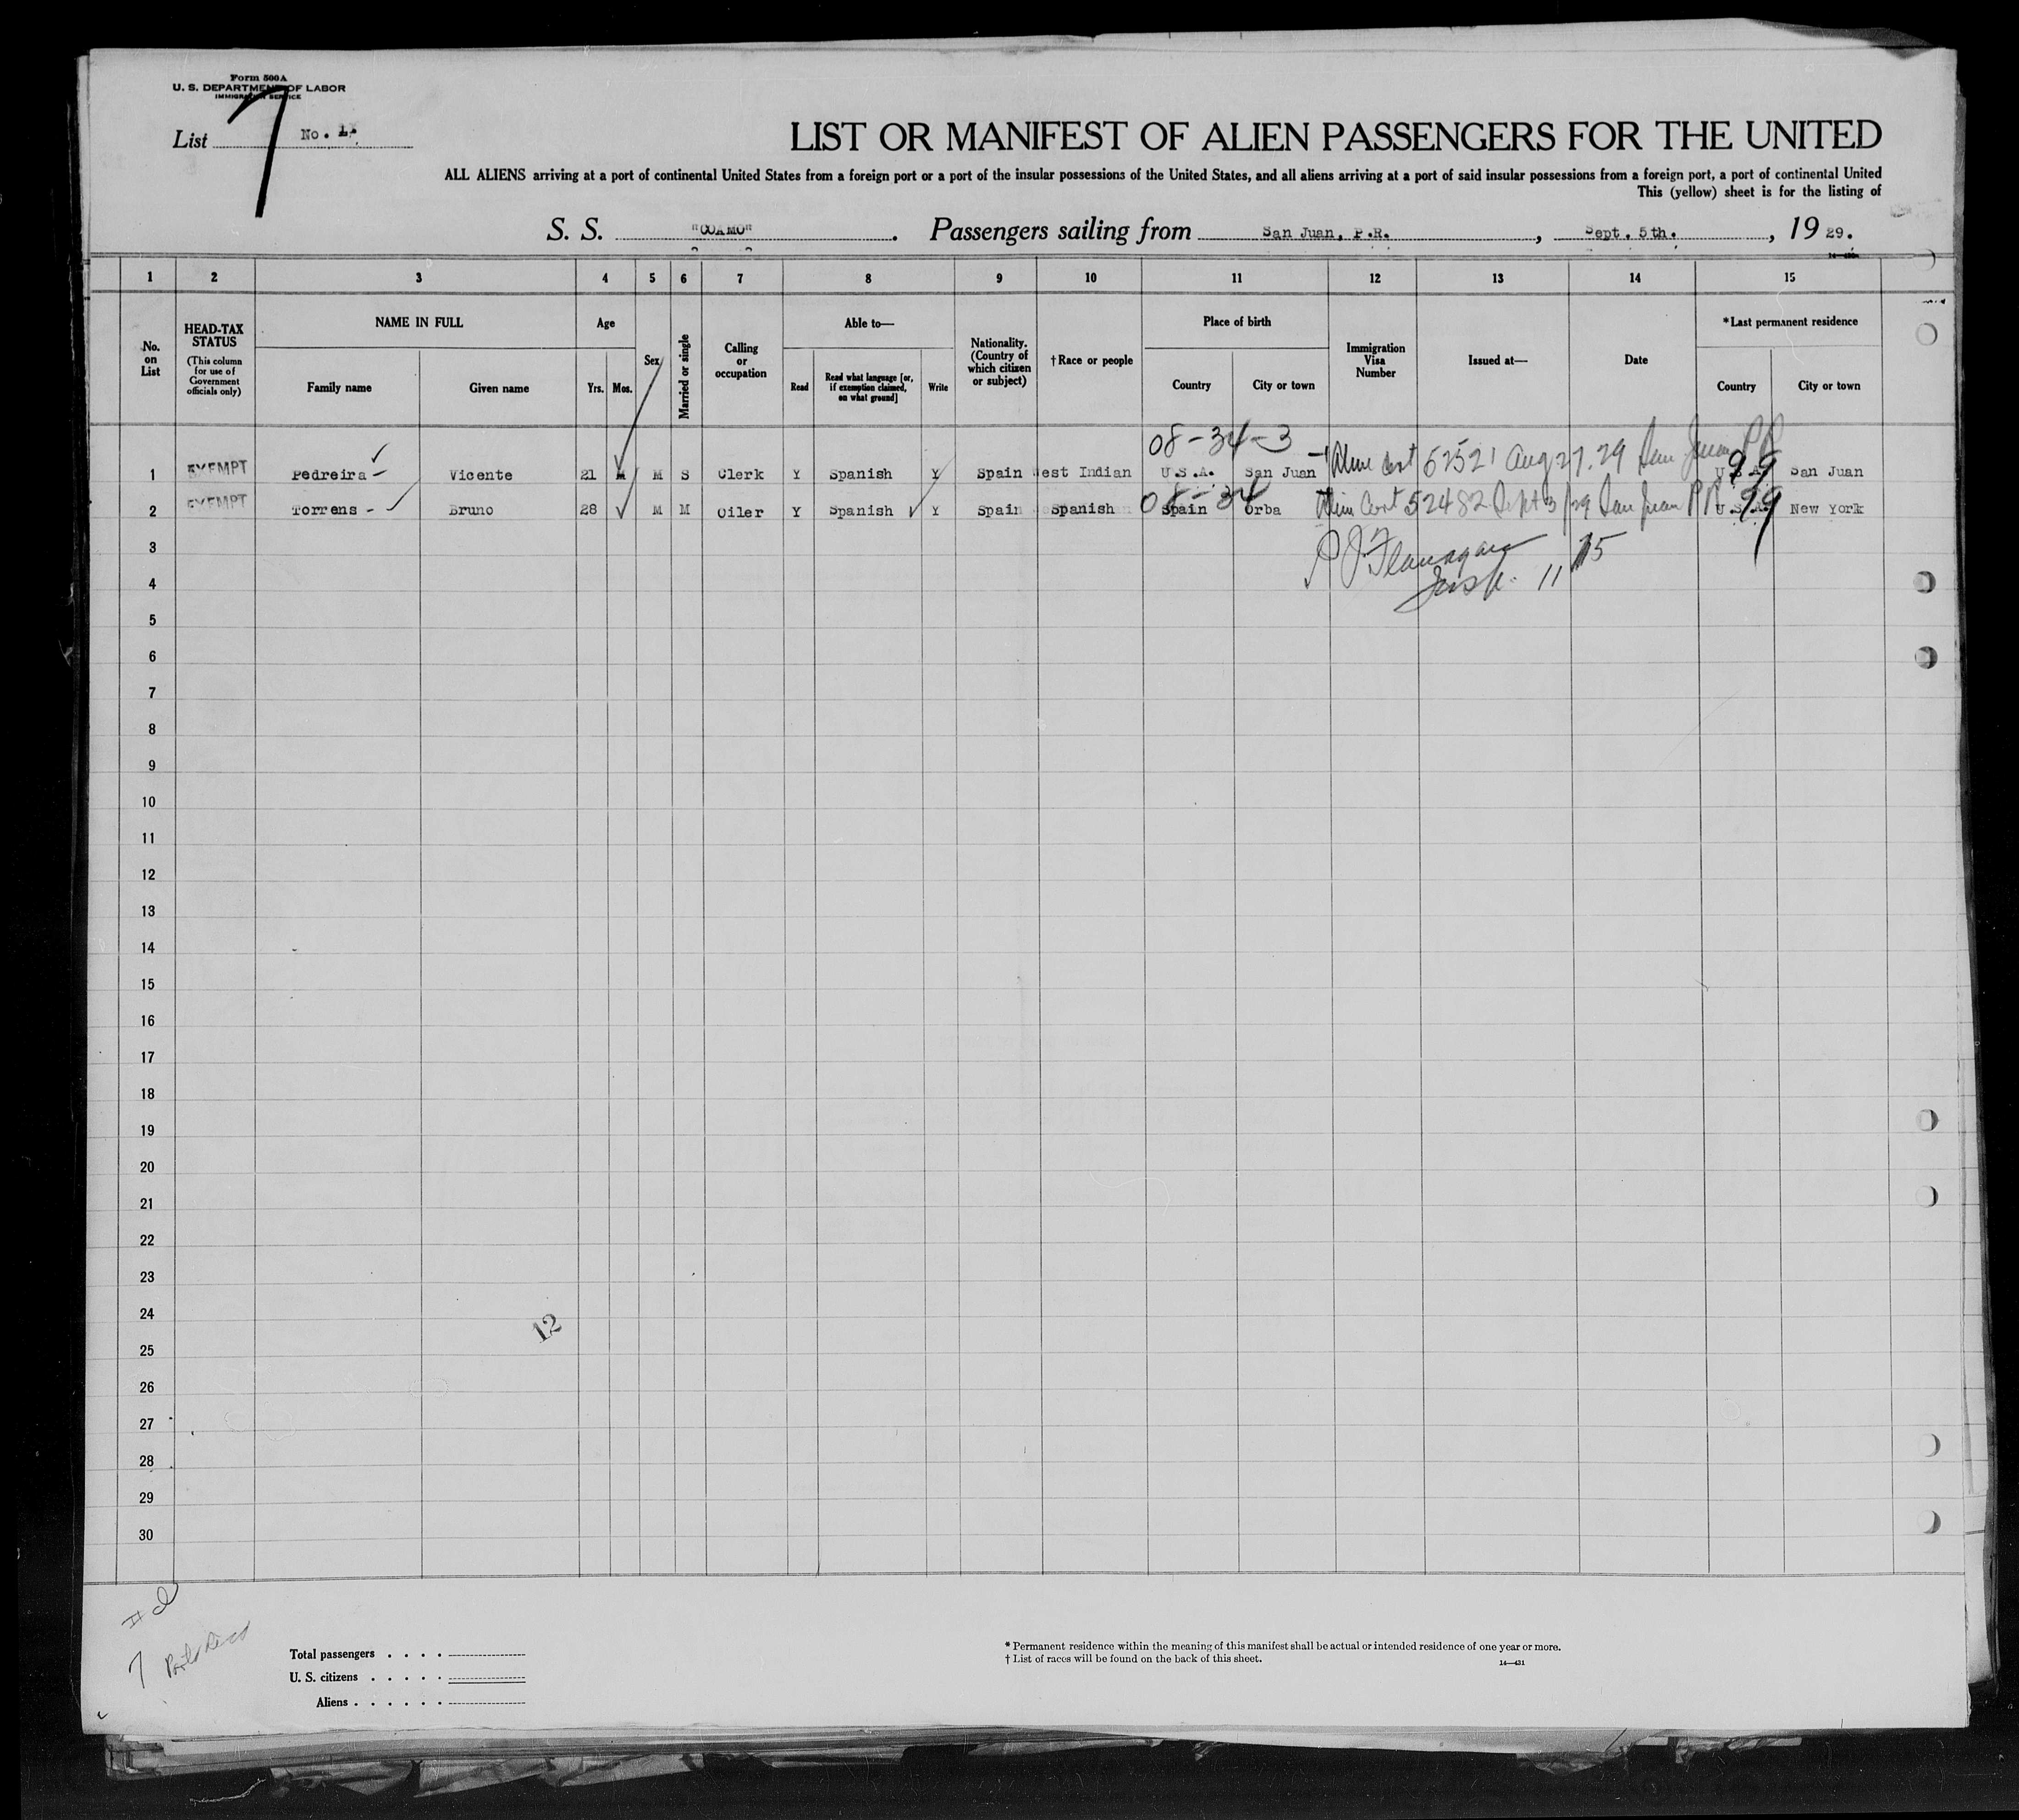 Form 500A
U. S. DEPARTMENT OF LABOR
IMMIGRATION SERVICE
List No. 1.
7
LIST OR MANIFEST OF ALIEN PASSENGERS FOR THE UNITED
ALL ALIENS arriving at a port of continental United States from a foreign port or a port of the insular possessions of the United States, and all aliens arriving at a port of said insular possessions from a foreign port, a port of continental United
This (yellow) sheet is for the listing of
S. S. "COAMO". Passengers sailing from San Juan, P.R., Sept. 5th., 19 29.
1 2 3 4 5 6 7 8 9 10 11 12 13 14 15
No. on List
HEAD-TAX STATUS
(This column for use of Government officials only)
NAME IN FULL
Family name Given name
Age
Yrs. Mos.
Sex
Married or single
Calling or occupation
Able to—
Read Read what language [or, if exemption claimed, on what ground] Write
Nationality. (Country of which citizen or subject)
† Race or people
Place of birth
Country City or town
Immigration Visa Number
Issued at—
Date
*Last permanent residence
Country City or town
08-34-3
1 EXEMPT Pedreira Vicente 21 M S Clerk Y Spanish Y Spain West Indian U.S.A. San Juan Cert 52521 Aug 27.29 San Juan PR U.S.A. 99 San Juan
08-34
2 EXEMPT Torrens Bruno 28 M M Oiler Y Spanish Y Spain Spanish Spain Orba Cert 52482 Sept 3/29 San Juan PR U.S.A. 99 New York
3 P J Flanagan 15
4 Insp. 11
5
6
7
8
9
10
11
12
13
14
15
16
17
18
19
20
21
22
23
24
12
25
26
27
28
29
30
7 Porto Rico
Total passengers . . . .
U. S. citizens . . . . .
Aliens . . . . . .
* Permanent residence within the meaning of this manifest shall be actual or intended residence of one year or more.
† List of races will be found on the back of this sheet.
14—431